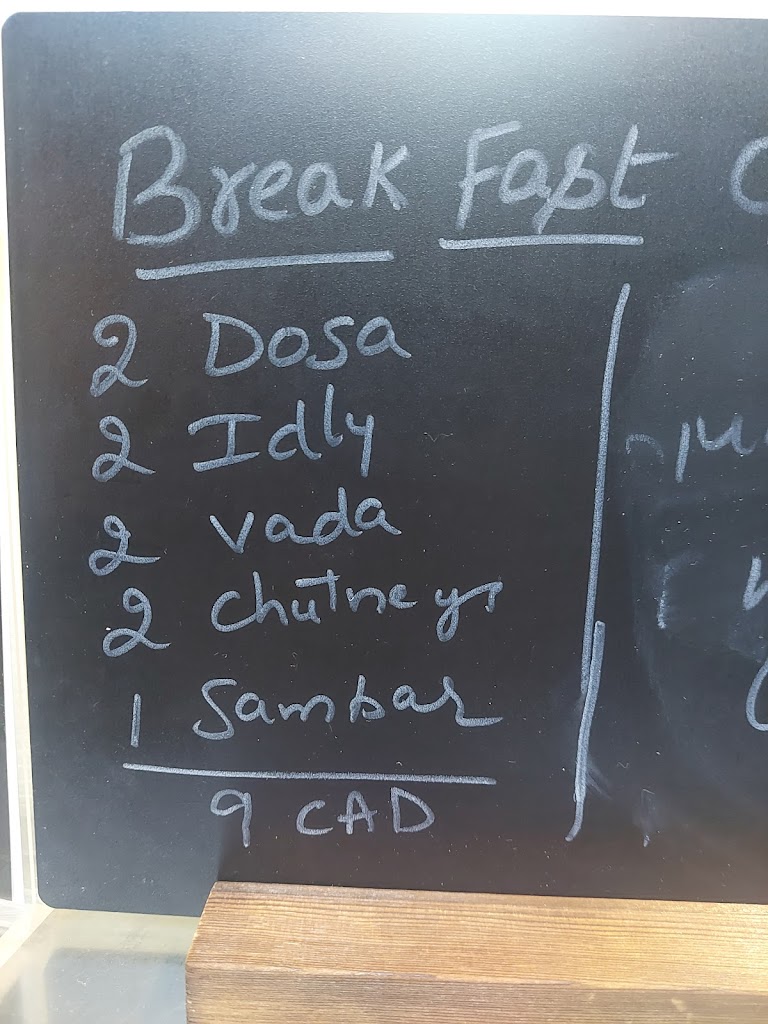 Break Fast
2 Dosa
2 Idly
2 vada
2 chutneys
1 Sambar
9 CAD